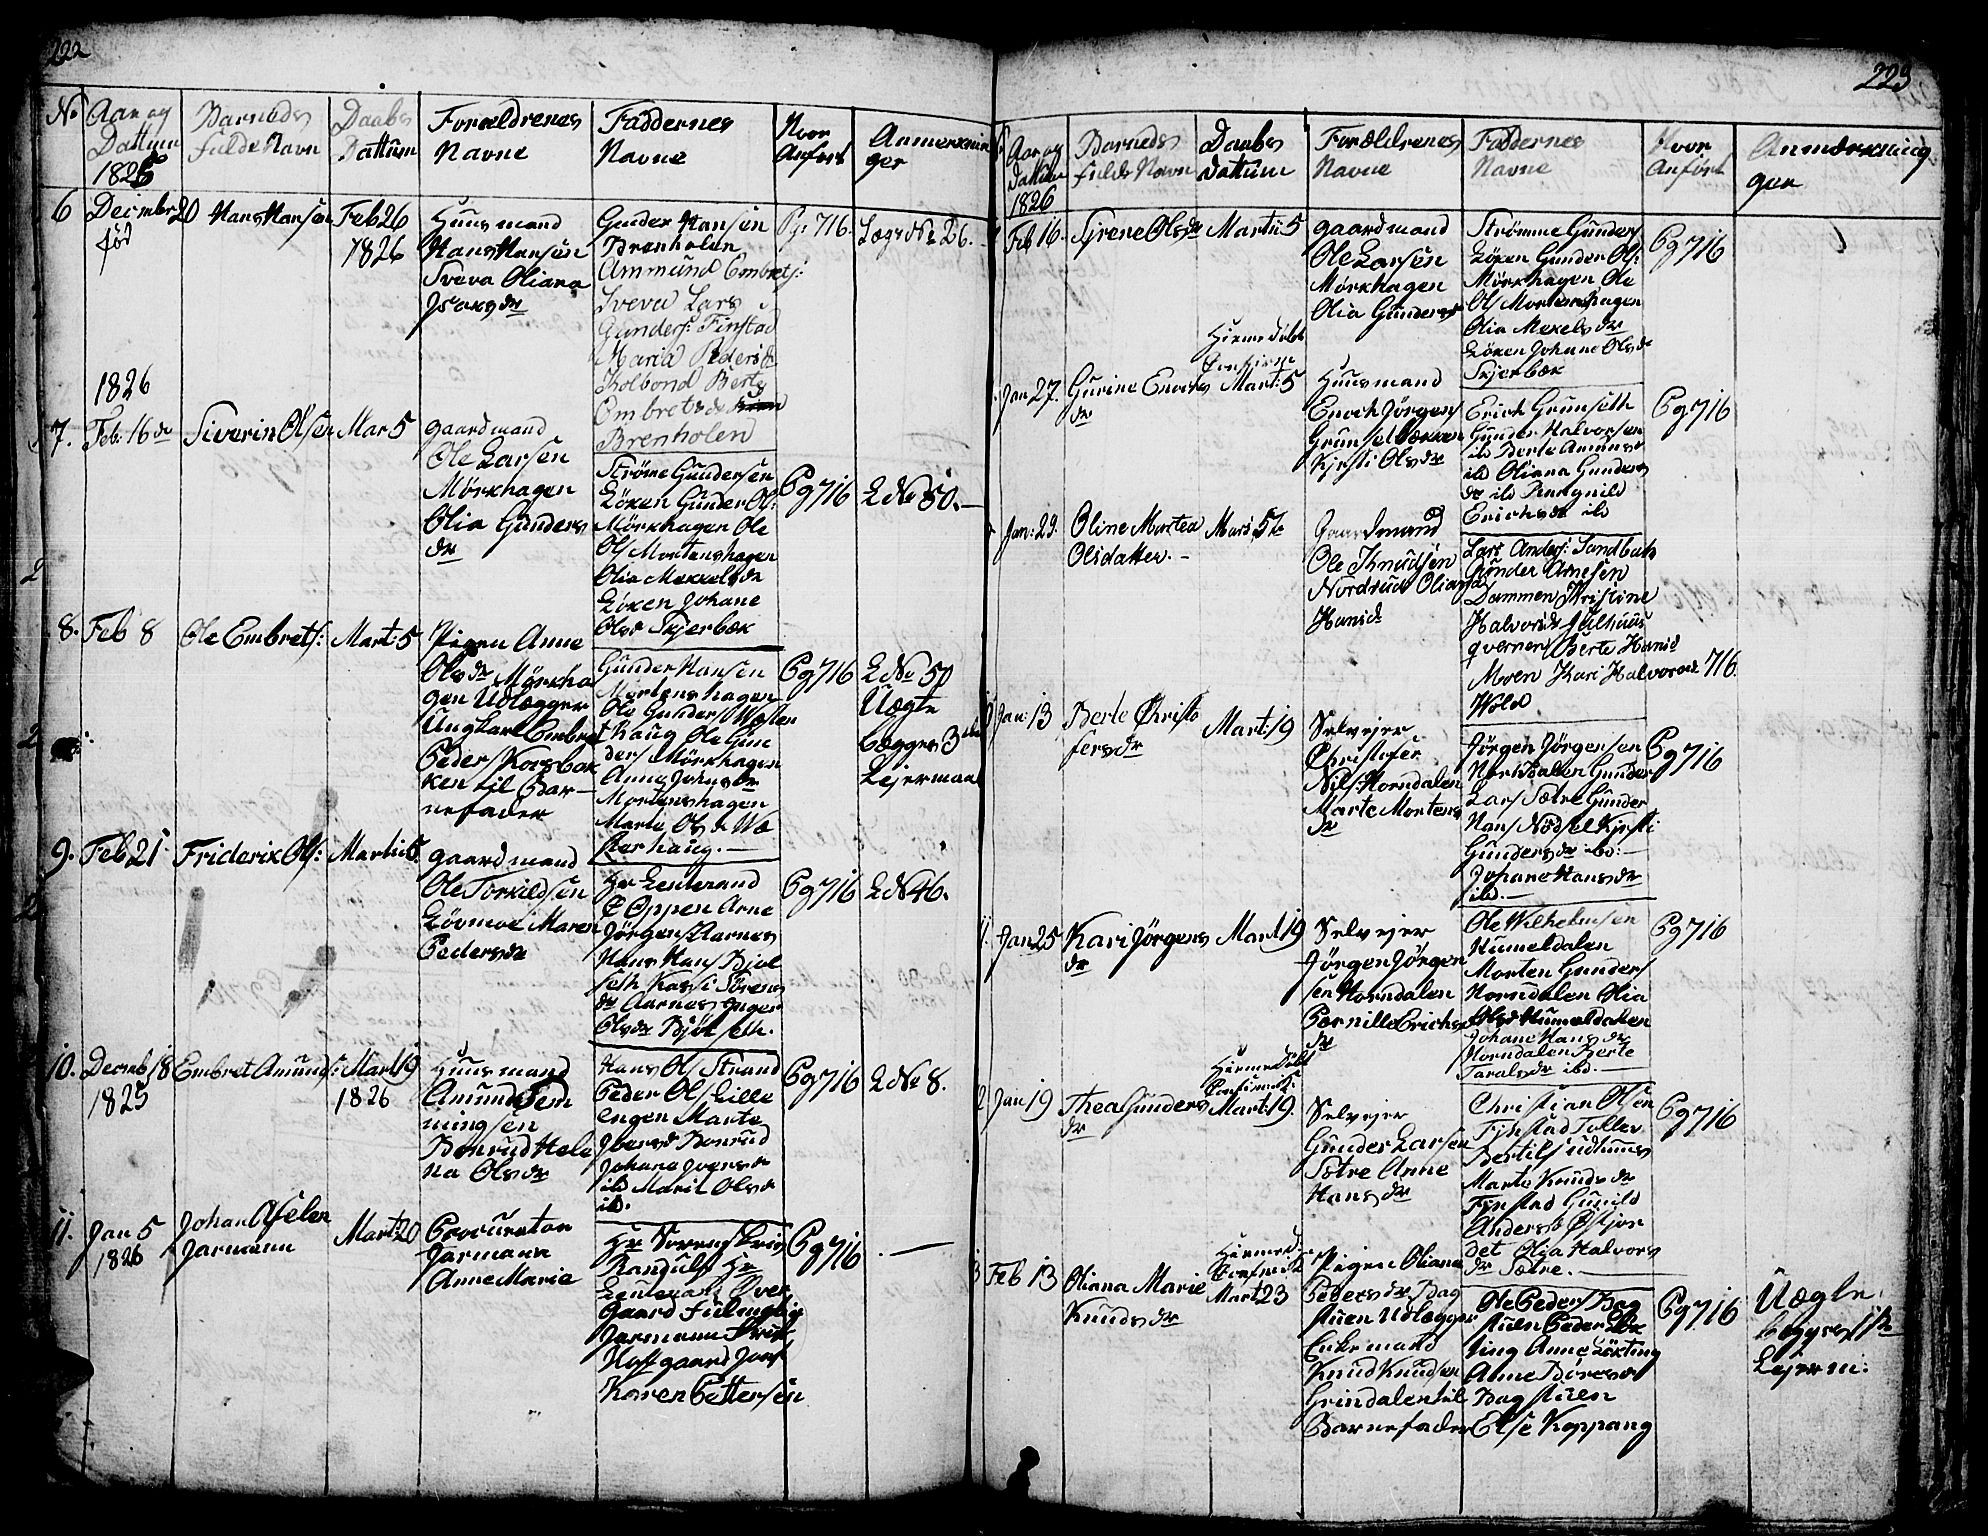 222
No
Aar og
Dattum
1826
Barnets
fulde Navn
Daabs
Dattum
Forældrenes
Navne
Faddernes
Navne
Hvor
Anført
Anmerknin
ger
6
Decmber 20
fød
Hans Hansen
Feb 26
1826
Huusmand
Hans Hansen
Sveva Oliana
Isaksdr
Gunder Hansen
Brenholen
Ammund Embrets:
Sveva Lars
Gunders: Finstad
Maria Peders
Kolbond Berte
Embretsdr
Brenholen
Pg 716.
Lægs No 26.
1826
7.
Feb: 16de
Siverin Olsen
Mar 5
gaardmand
Ole Larsen
Mörkhagen
Olia Gunders
dr
Ströme Gundersen
Löken Gunder Ols:
Mörkhagen Ole
Ols Mortenshagen
Olia Mekkelsdr
Löken Johane
Olsd Skjerbæk
Pg 716
L No 50.
8.
Feb 8
Ole Embrets:
Mart: 5
Pigen Anne
Olsdr Mörkha
gen Udlægger
Ungkarl Embret
Peders Korsbak
ken til Bar-
nefader
Gunder Hansen
Mortenshagen
Ole Gunders Wæster
haug Ole Gun
ders Mörkhagen
Anne Johnsdr
Mortenshagen
Marte Olsdr Wæ
sterhaug.
Pg 716
L No 50
Uægte
begges 3die
Lejermaal
9.
Feb 21
Friderik Ols:
Martii 5
gaardmand
Ole Torkildsen
Lövmoe Maren
Pedersdr
Hr Leutenand
C Oppen Arne
Jörgens Aarnes
Hans Hans Bjöl
seth Kassi Sörens
dr Aarnes Inger
Olsdr Bjölseth.
Pg 716
L No 46.
10.
Decmb 18
1825
Embret Amunds:
Mart 19
1826
Huusmand
Amund Fem
mingsen
Bonrud Hele
na Olsdr
Hans Ols Strand
Peder Ols Lille
engen Marte
Iversd Bonrud
Johane Iversdr
ib Marit Olsdr
ib.
Pg 716
L No 8.
11.
Jan 5
1826
Johan Aselen
Jarmann
Mart: 20
Procurator
Jarmann
Anne Marie
Hr Sorenskriv
Randulf Hr
Leutenant Over
Gaard
Jarmann Frue
Hofgaard Jomf
Karen Pettersen
Pg 716
223
Aar og
Dattum
1826
Barnets
fulde Navn
Daabs
Dattum
Forældrenes
Navne
Faddernes
Navne
Hvor
Anført
Anmærkning
ger
Feb 16.
Syrene Olsdr
Martii 5
gaardmand
Ole Larsen
Mörkhagen
Olia Gundersdr
Strömme Gunders
Löken Gunder Ols:
Mörkhagen Ole
Ols Mortenshagen
Olia Mekelsdr
Löken Johane Olsdr
Skjerbæk
Pg 716
Jan 27.
Gurine Enochs
dr
Hiemmedöbt
Confirm
Mart: 5
Huusmand
Enoch Jörgens
Grunsetbækken
Kjersti Olsdr
Erich Grunseth
Gunder Halvorsen
ib Berte Amunds
ib Oliana Gunders
dr ib Rangnild
Erichsdr ib
Pg 716
Jan: 29.
Oline Martea
Olsdatter. -
Marti 5te
Gaardmand
Ole Knudsen
Nordrud Oliana
Hansdr
Lars Anders: Sandbak
Gunder Arnesen
Dammen Kristine
Halvorsdr Julhuus
qvernen Berte Hansd
Moen Kari Halvorsdr
Wold
716.
Jan: 13
Berte Christo
fersdr
Mart: 19
Selvejer
Christofer
Nils: Horndalen
Marte Mortens
dr
Jörgen Jörgensen
Horndalen Gunder
Lars Sætre Gunder
Hans Nödsel Kjersti
Gundersdr ibd:
Johane Hansdr
ibd.
Pg 716
11.
Jan 25
Kari Jörgens
dr
Mart 19
Selvejer
Jörgen Jörgen
sen Horndalen
Pernille Erichs
dr
Ole Wilhelmsen
Humeldalen
Morten Gunders
Horndalen Olia
Olsd Humeldalen
Johane Hansdr
Horndalen Berte
Taralsdr ibd.
Pg 716
Jan 19
Thea Gunders
dr
Hiemmedöbt
Confirm
Mart: 19.
Selvejer
Gunder Larsen
Sætre Anne
Hansdr
Christian Olsen
Fynstad Tollev
Bertils udhuus
Marte Knudsdr
Fynstad Gunild
Andersd Östjor
det Olia Halvors
dr Sætre.
Pg 716
Feb 13
Oliana Marie
Knudsdr
Hiemmed
Confirm
Mart 23
Pigen Oliana
Pedersdr Bag
stuen Udlægger
Enkemand
Knud Knudsen
Grindalen til
Barnefader
Ole Peders Bag
stuen Peder Læk
ting Anne Lökting
Anne Böresdr
Bagstuen
Else Koppang
Pg 716
Uægte
begges 1ste
Lejerm: